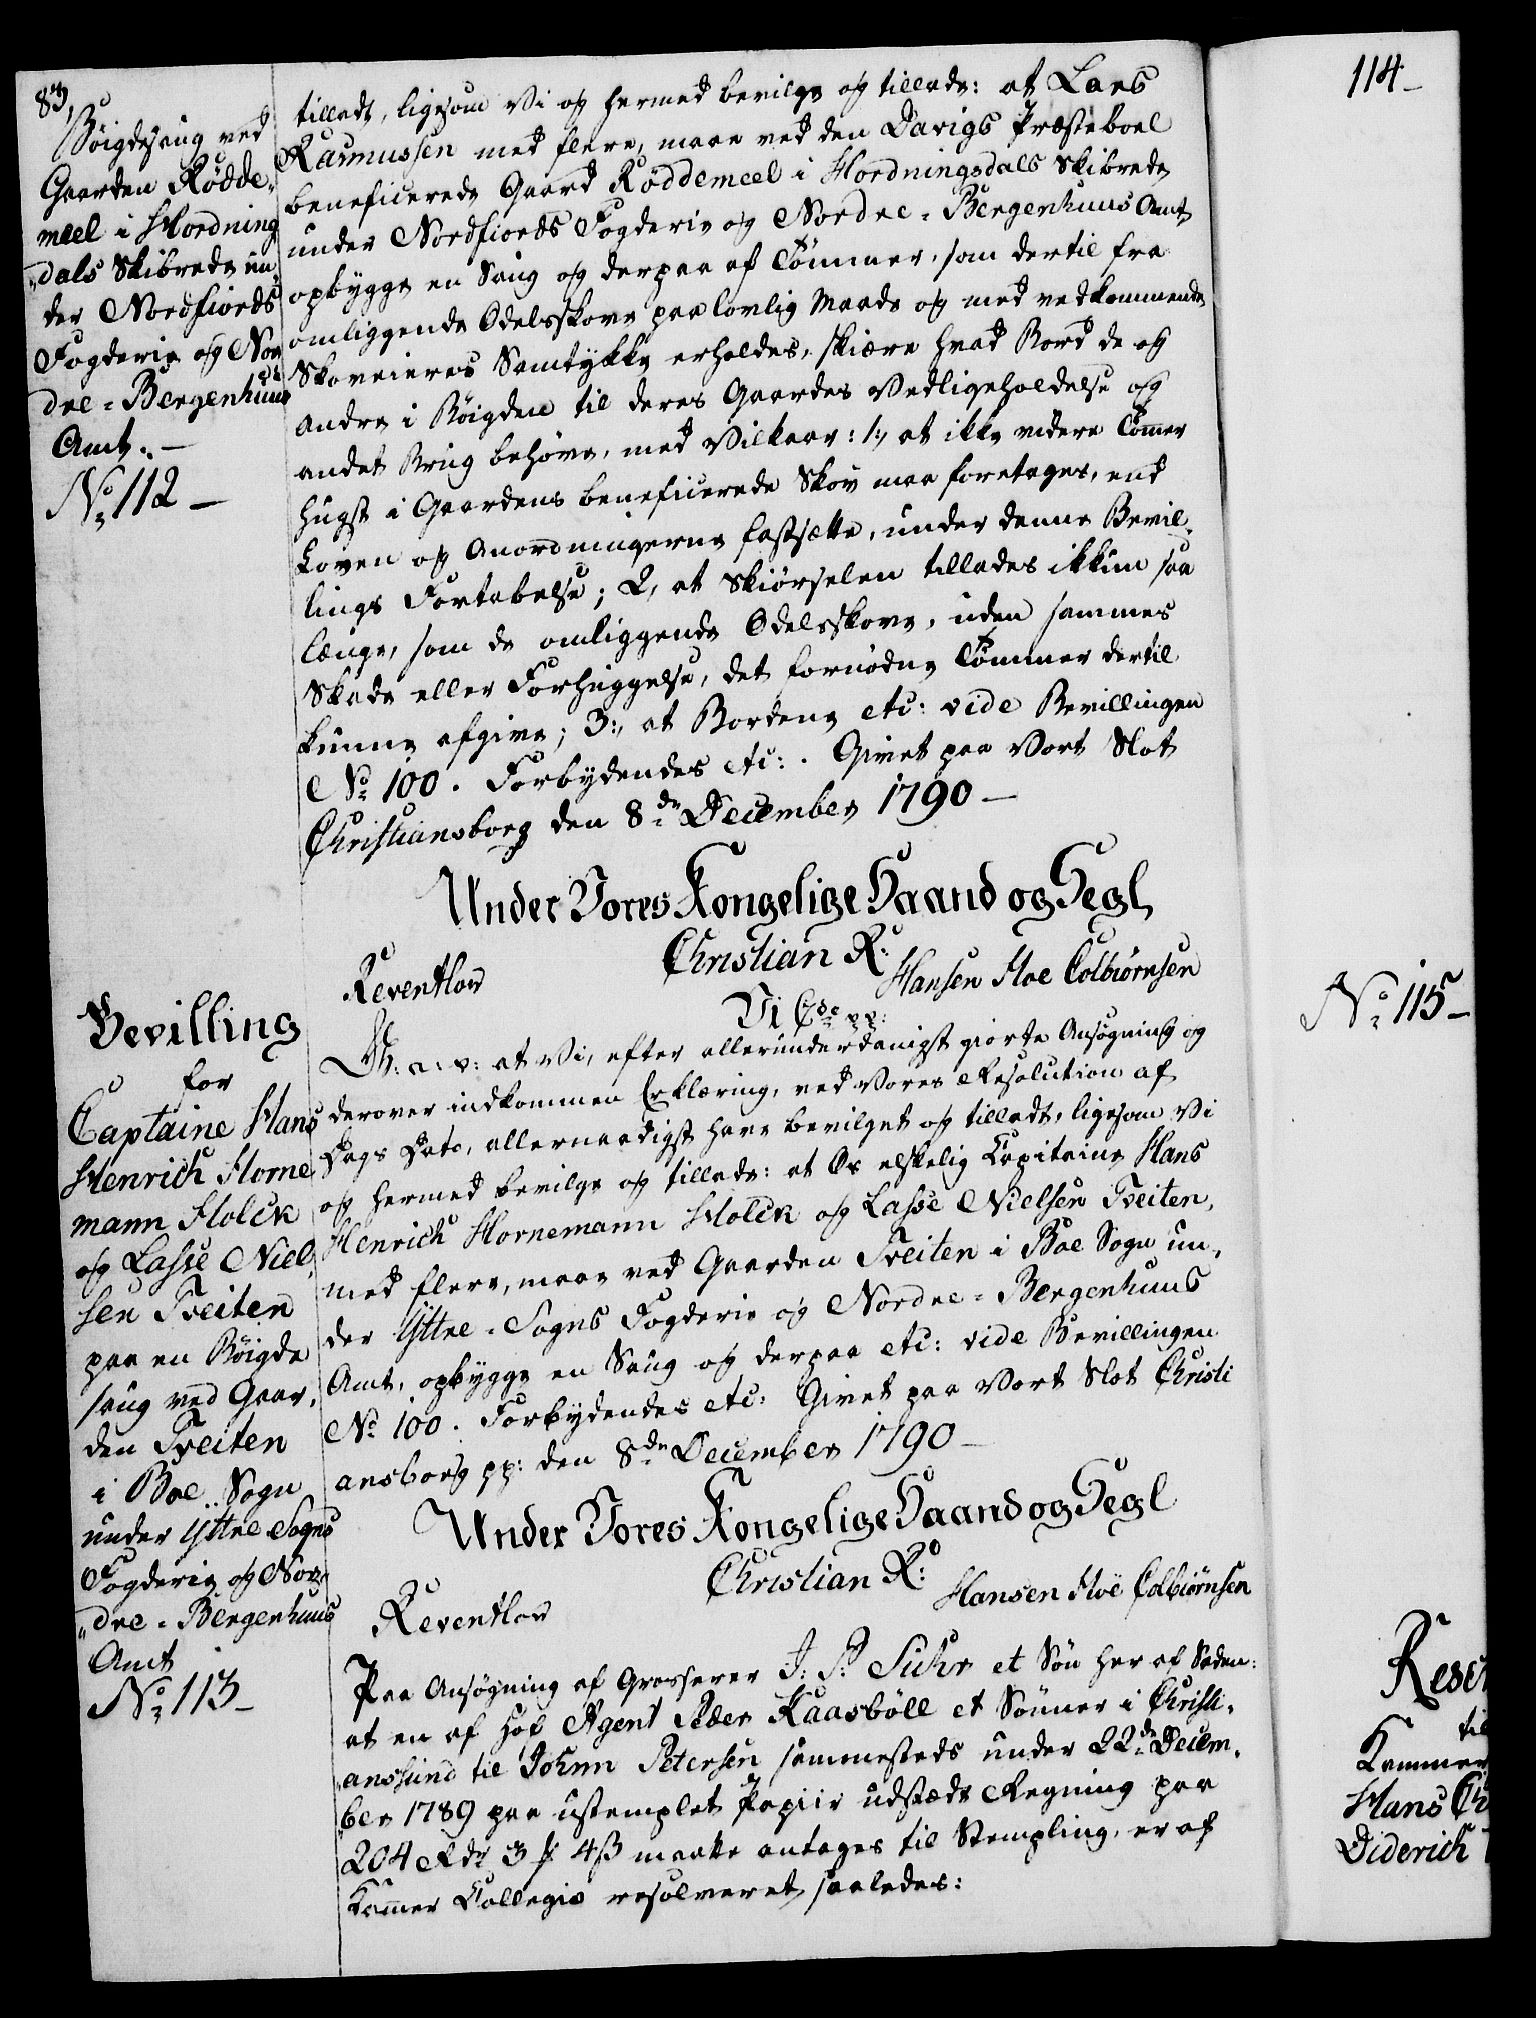 83,
Böigdesaug ved
Gaarden Rödde-
meel i Hordning
„dals Skibrede un„
der Nordfiords
Fogderie og Nor
dre-Bergenhuus
Amt.—
No 112 —
tilladt, ligesom Vi og hermed bevilge og tillade: at Lars
Rasmussen med flere, maae ved den Davigs Præsteboel
beneficerede Gaard Röddemeel i Hordningsdals Skibrede
under Nordfiords Fogderie og Nordre-Bergenhuus Amt
opbygge en Saug og derpaa af Tömmer, som dertil fra
omliggende Odelsskove paa lovlig Maade og med vedkommende
Skoveieres Samtykke erholdes, skiære hvad Bord de og
andre i Böigden til deres Gaardes Vedligeholdelse og
andet Brug behöve, med Vilkaar: 1:, at ikke videre Tömer
hugst i Gaardens beneficerede Skov maa foretages, end
Loven og Anordningerne fastsætte, under denne Bevil-
lings Fortabelse; 2, at Skiörselen tillades ikkun saa
længe, som de omliggende Odelsskove, uden sammes
Skade eller Forhuggelse, det fornödne Tömmer dertil
kunne afgive; 3:, at Bordene etc: vide Bevillingen
No 100. Forbydendes etc:. Givet paa Vort Slot
Christiansborg den 8de December 1790 —
Under Vores Kongelige Haand og Segl,
Christian R:
Reventlov
Hansen Hoe Colbiörnsen
Bevilling
for
Captaine Hans
Henrich Horne
mann Holck
og Lasse Niel„
sen Tveiten
paa en Böigde
saug ved Gaar„
den Tveiten
i Boe Sogn
under Yttre Sogns
Fogderie og Nor-
„dre-Bergenhuus
Amt
No 113 —
Vi C 7de pp:
G: a: v: at Vi, efter allerunderdanigst giorte Ansögning og
derover indkommen Erklæring, ved Vores Resolution af
Dags Dato, allernaadigst have bevilget og tilladt, ligesom Vi
og hermed bevilge og tillade: at Os elskelig Capitaine Hans
Henrich Hornemann Holck og Lasse Nielsen Tveiten,
med flere, maae ved Gaarden Tveiten i Boe Sogn un„
der Yttre-Sogns Fogderie og Nordre-Bergenhuus
Amt, opbygge en Saug og derpaa etc: vide Bevillingen
No 100. Forbydendes etc: Givet paa Vort Slot Christi
ansborg pp: den 8de December 1790 —
Under Vores Kongelige Haand og Segl
Christian R:
Reventlov
Hansen Hoë Colbiörnsen
Paa Ansögning af Grosserer J: P: Suhr et Sön her af Staden:
at en af Hof Agent Peder Kaasböll et Sönner i Christi-
„ansund til Johan Petersen sammesteds under 22de Decem„
ber 1789 paa ustemplet Papiir udstædt Regning paa
204 Rdr 3 ꝟ 4 ß maatte antages til Stempling, er af
Kamer Collegio resolveret saaledes:
114 —
No 115 —
Reser
til
Kammer
Hans Ch
Diderich